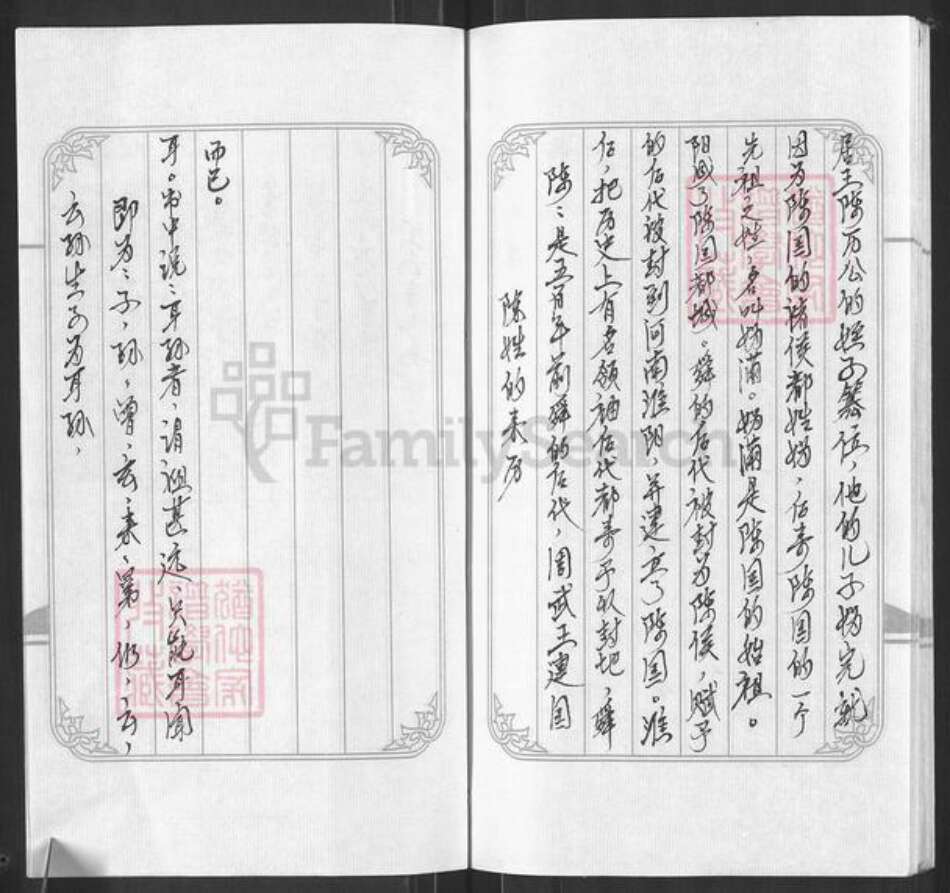 云孙生子为耳孙,
即为:子,孙,曾,玄,来,仍,云,
耳。书中说:耳孙者,谓祖甚远,只能耳闻
而已。
陈姓的来历
陈:是五百年前舜的后代,周武王建国
后,把历史上有名领袖后代都寿予以封地,舜
的后代被封到河南淮阳,并建立了陈国。淮
阳成了陈国都城。舜的后代被封为陈侯,赋予
先祖之姓,名叫妫满。妫满是陈国的始祖。
因为陈国的诸侯都姓妫,后寿陈国的一个
陈厉公的,他的儿子妫完就
FamilySearch